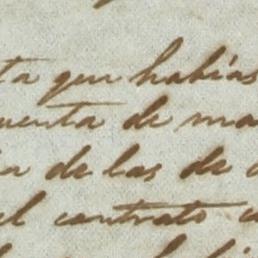 ta que habías
uenta de ma
a de las de
el contrato